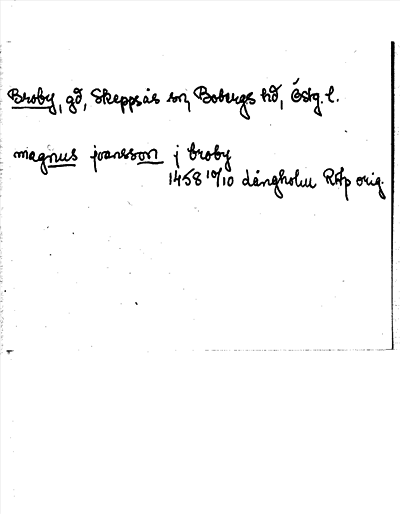 Broby, gd, Skeppsås sn, Bobergs hd, Östg. l.
magnus joansson j broby
1458 10/10 dångholm RAp orig.